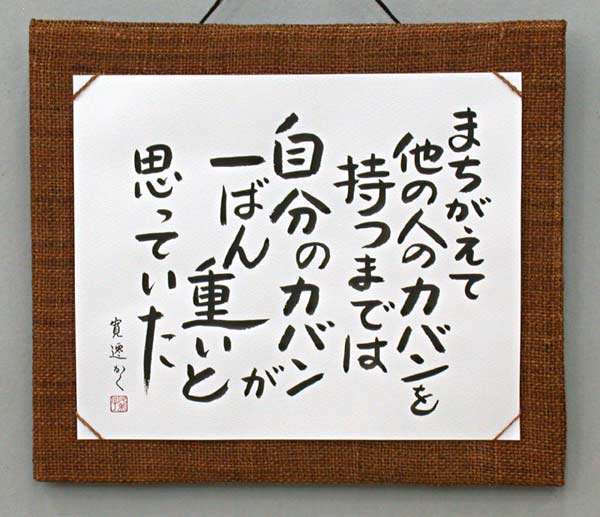 まちがえて
他の人のカバンを
持つまでは
自分のカバンが
一ばん重いと
思っていた
寛遷かく